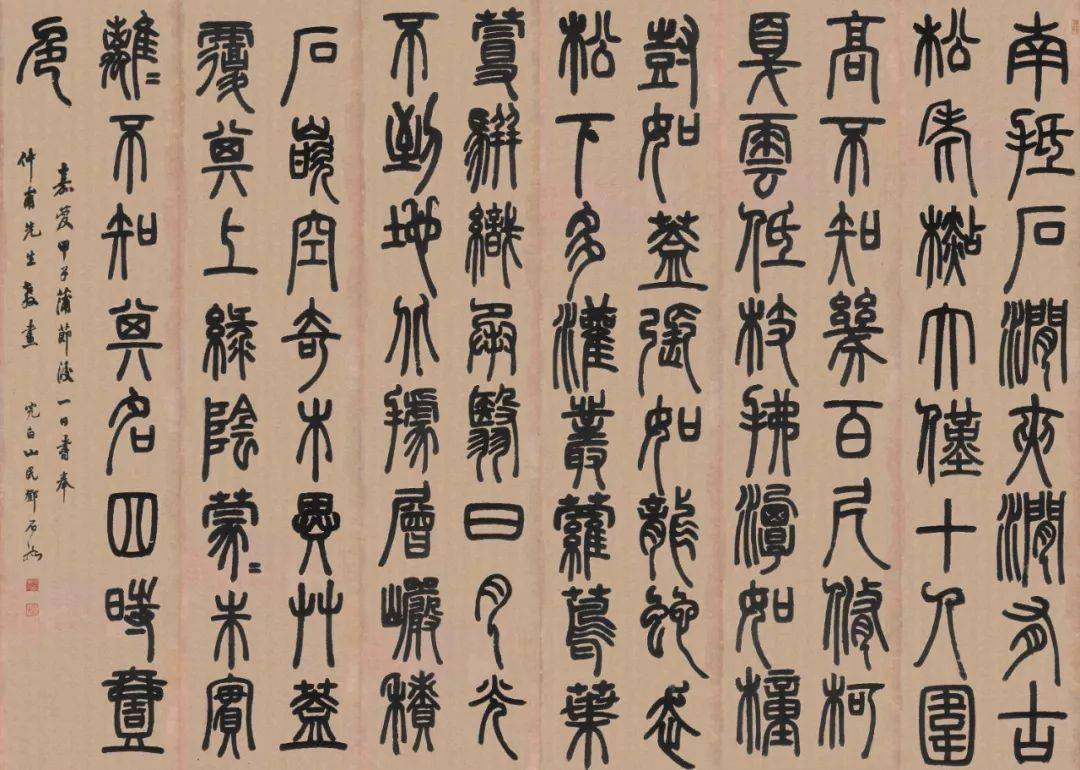 南抵石澗夾澗有古
松老檆大僅十人圍
高不知幾百尺脩柯
戛雲低枝拂潭如橦
尌如蓋張如龍蛇走
松下多灌叢蘿蔦葉
蔓騈織承翳日月光
不到地北據層巖積
石嵌空奇木異艸蓋
覆其上綠陰蒙〻朱實
離〻不知其名四時壹
色
嘉慶甲子蒲節後一日書奉
仲甫先生教畫 完白山民鄧石如